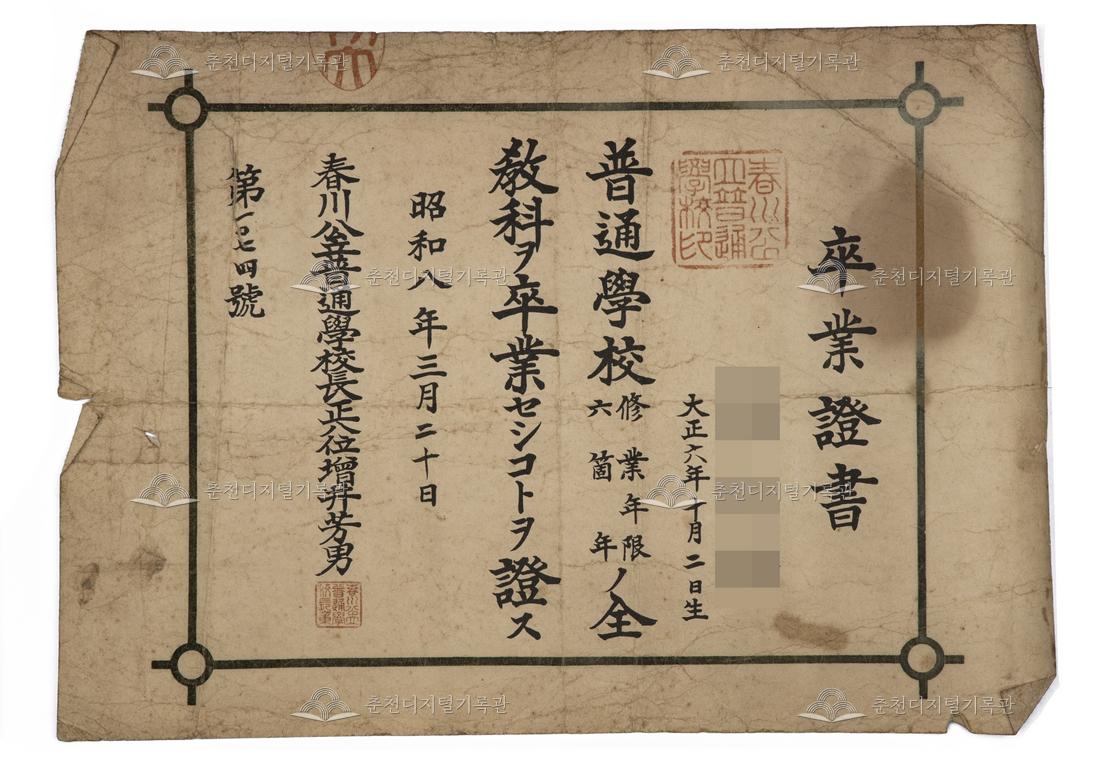 卒業證書
春川公
立普通
學校印
大正六年十月二日生
普通學校修業年限六箇年ノ全
教科ヲ卒業セシコトヲ證ス
昭和八年三月二十日
春川公立普通學校長正八位增井芳男
第一七四號
춘천디지털기록관
춘천디지털기록관
춘천디지털기록관
춘천디지털기록관
춘천디지털기록관
춘천디지털기록관
춘천디지털기록관
춘천디지털기록관